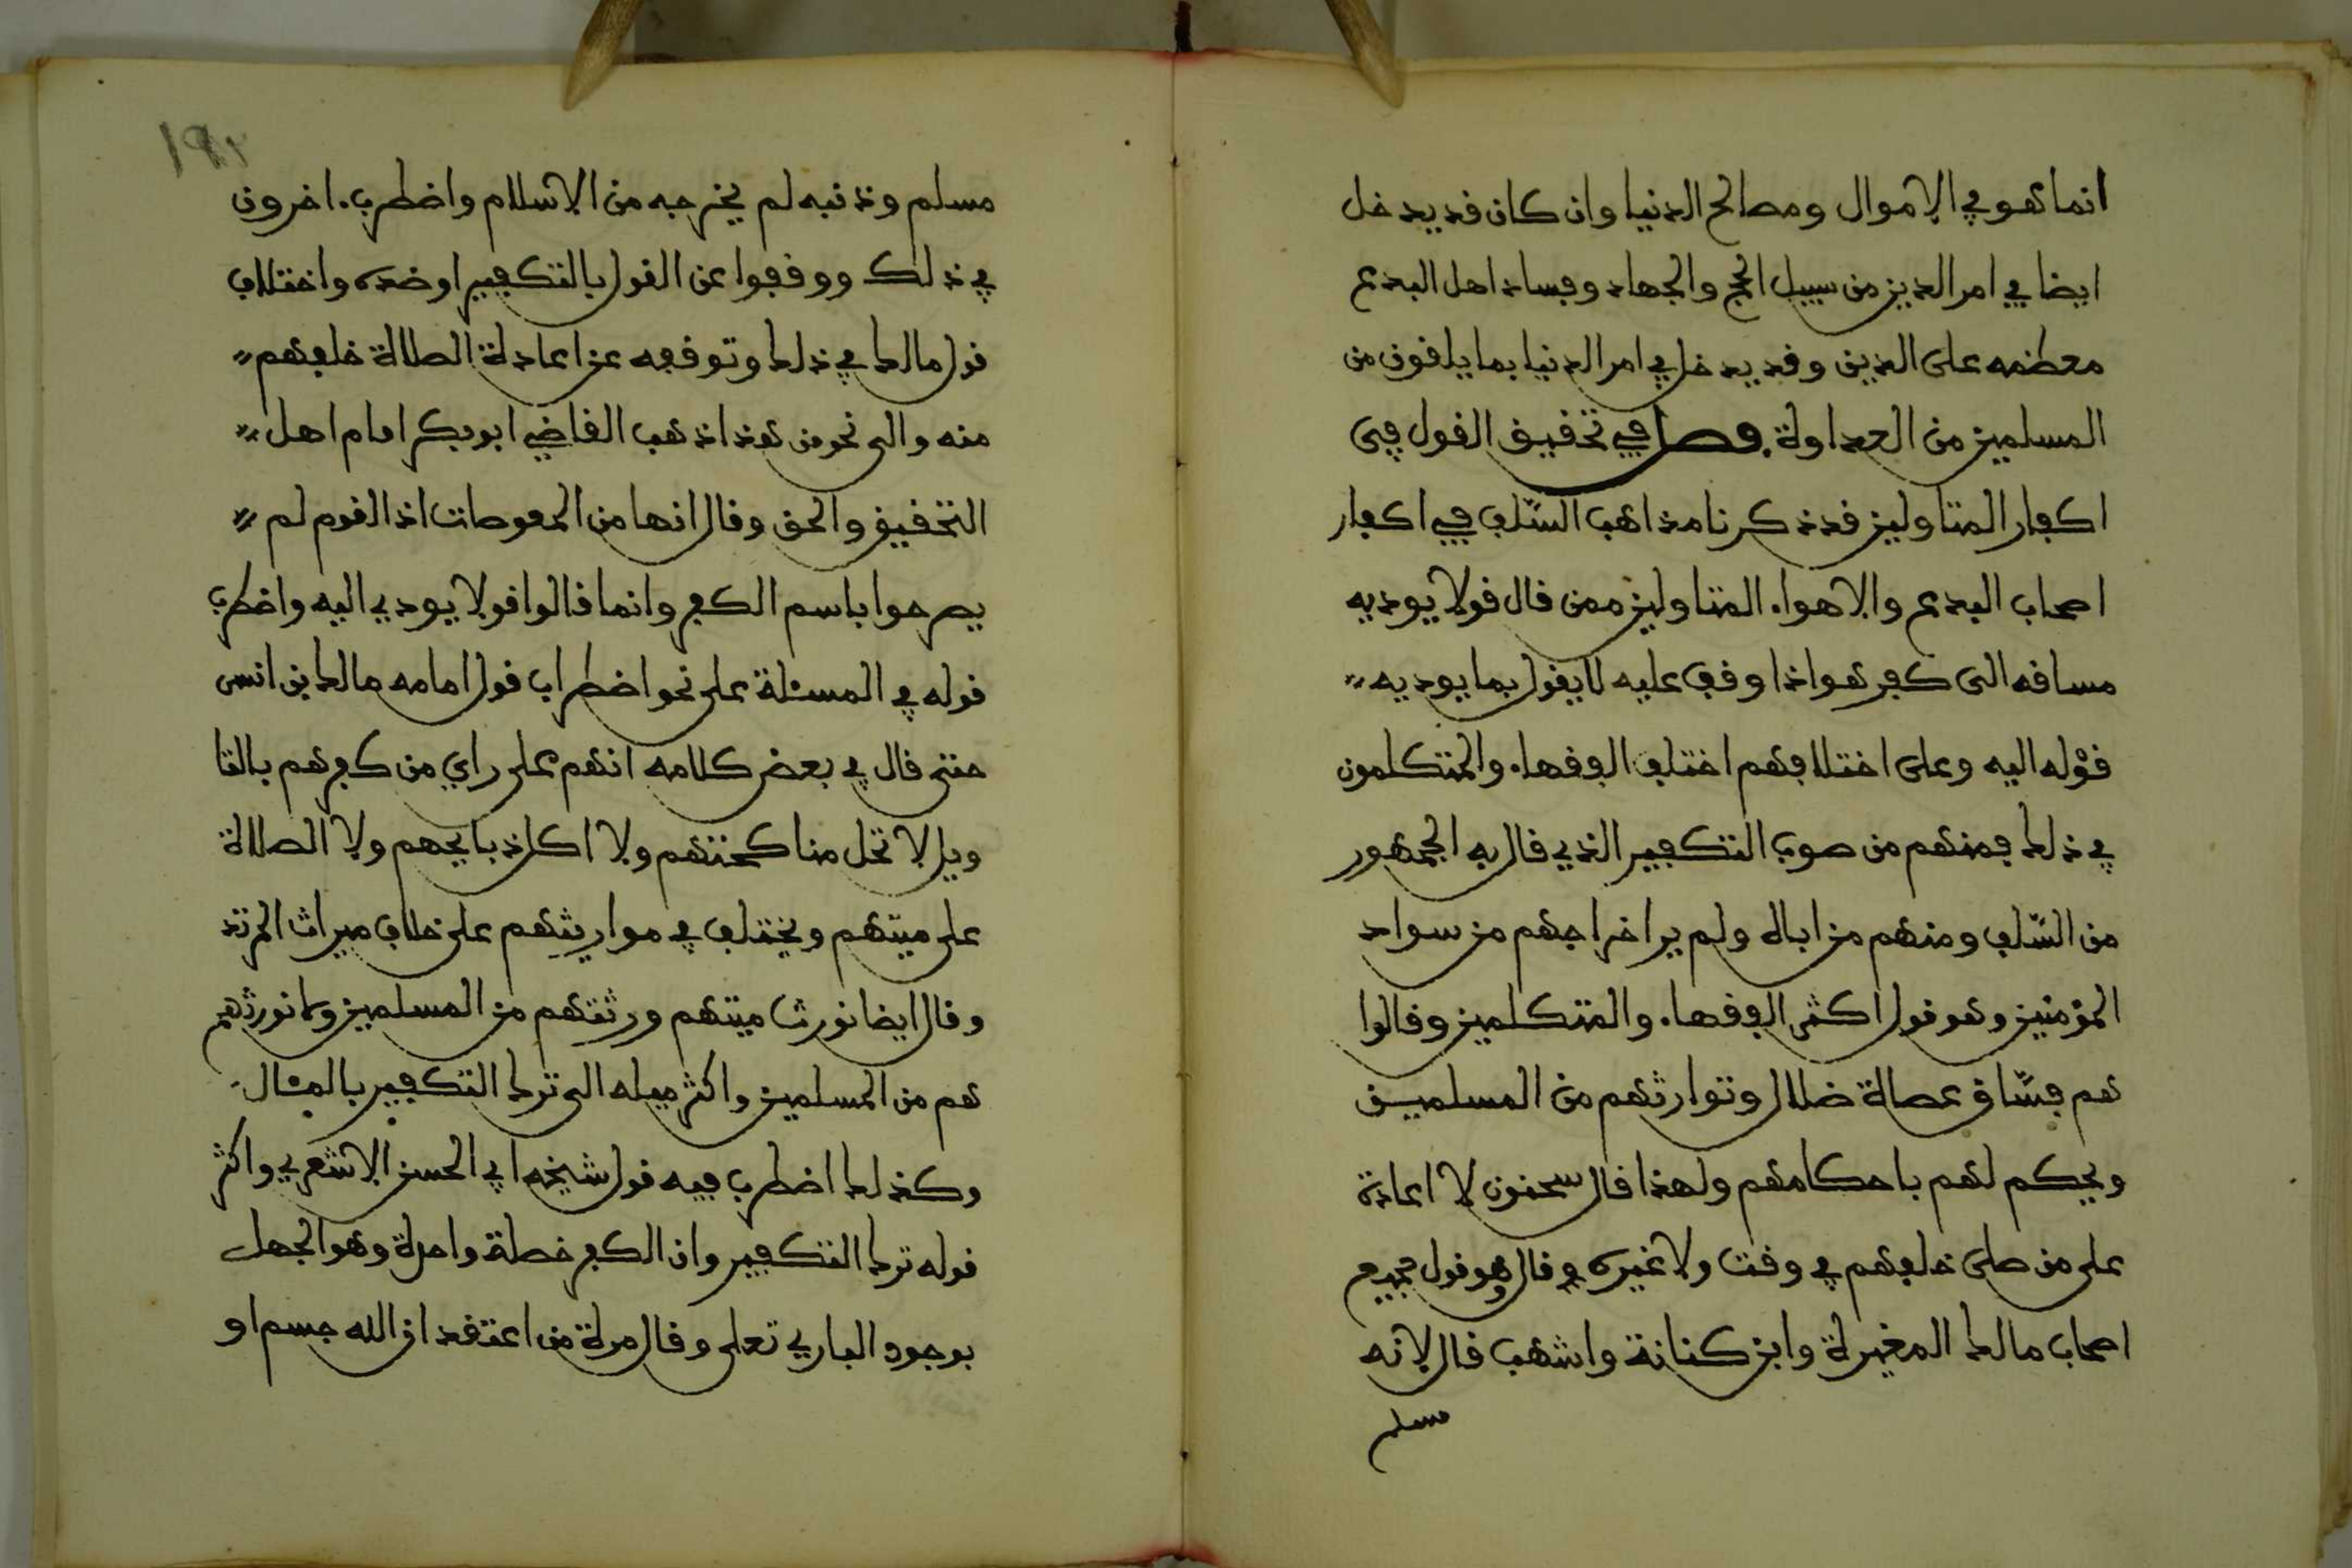 انما هو في الاموال ومصالح الدنيا وان كان قد يدخل
ايضا في امر الدين من سبيل الحج والجهاد وفساد اهل البدع
معظمه على الدين وقد يدخل في امر الدنيا بما يلقون من
المسلمين من العداوة فصل في تحقيق القول في
اكفار المتاولين قد ذكرنا مذاهب السّلف في اكفار
اصحاب البدع والاهواء المتاولين ممن قال قولا يوديه
مساقه الى كفر هو اذا وقف عليه لا يقول بما يوديه
قوْله اليه وعلى اختلافهم اختلف الفقهاء والمتكلمون
في ذلك فمنهم من صوب التكفير الذي قال به الجمهور
من السّلف ومنهم من اباه ولم ير اخراجهم من سواد
المؤمنين وهو قول اكثر الفقهاء والمتكلمين وقالوا
هم فسّاق عصاة ضلال وتوارثهم من المسلمين
ويحكم لهم باحكامهم ولهذا قال سحنون لا اعادة
على من صلى خلفهم في وقت ولا غيره قال وهو قول جميع
اصحاب مالك المغيرة وابن كنانة واشهب قال لانه
مسلم
١٩٢
مسلم وذنبه لم يخرجه من الاسلام واضطرب اخرون
في ذلك ووقفوا عن القول بالتكفير او ضده واختلاف
قول مالك في ذلك وتوقفه عن اعادة الصلاة خلفهم
منه والى نحو من هذا ذهب القاضي ابو بكر امام اهل
التحقيق والحق وقال انها من المعوصات اذ القوم لم
يصرحوا باسم الكفر وانما قالوا قولا يودي اليه واضطرب
قوله في المسئلة على نحو اضطراب قول امامه مالك بن انس
حتى قال في بعض كلامه انهم على راي من كفرهم بالتا
ويل لا تحل مناكحتهم ولا اكل ذبايحهم ولا الصلاة
على ميتهم ويختلف في مواريثهم على خلاف ميراث المرتد
وقال ايضا نورث ميتهم ورثتهم من المسلمين ولا نورثهم
هم من المسلمين واكثر ميله الى ترك التكفير بالمئال
وكذلك اضطرب فيه قول شيخه ابي الحسن الاشعري واكثر
قوله ترك التكفير وان الكفر خصلة واحدة وهو الجهل
بوجود الباري تعلى وقال مرة من اعتقد ان الله جسم او